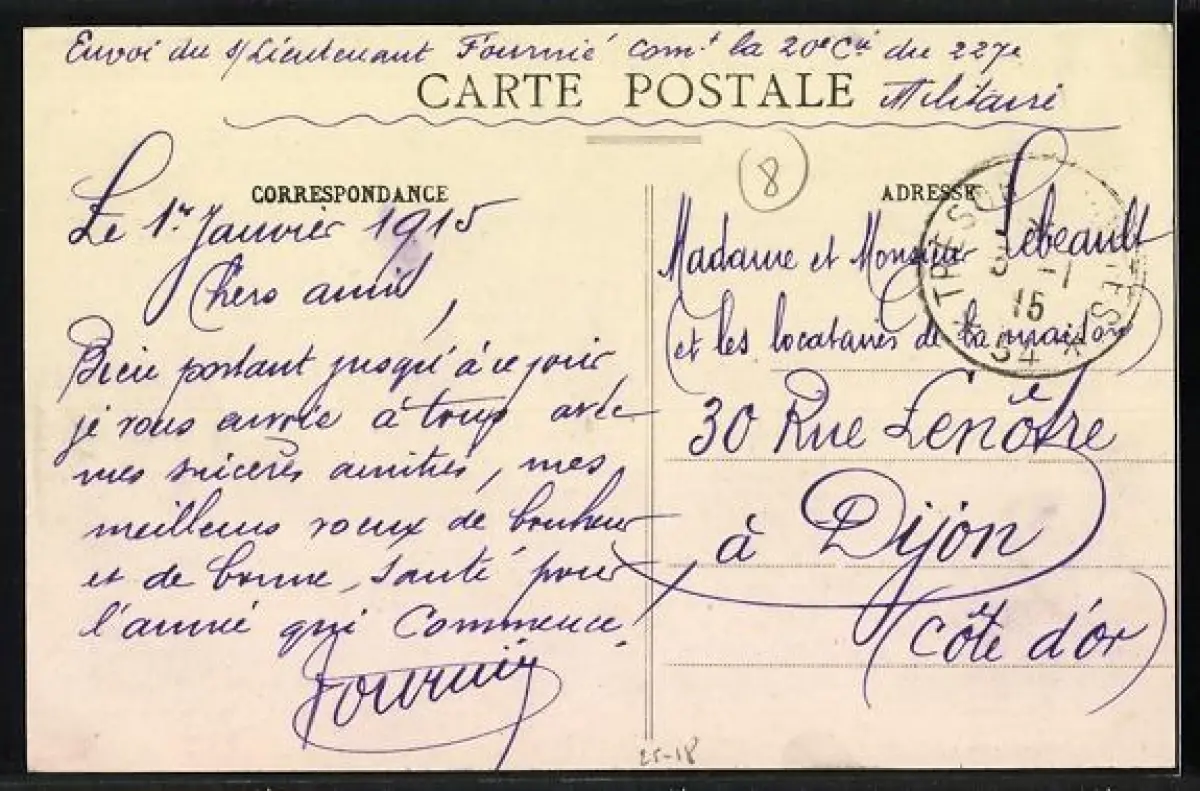 Envoi du s/Lieutenant Fournié comt la 20e Cie du 227e
CARTE POSTALE Militaire
8
CORRESPONDANCE
Le 1er Janvier 1915
Chers amis,
Bien portant jusqu'à ce jour
je vous envoie à tous avec
mes sincères amitiés, mes
meilleurs voeux de bonheur
et de bonne santé pour
l'année qui Commence.
Fournié
ADRESSE
Madame et Monsieur Lebeault
(et les locataires de la maison)
30 Rue Lenôtre
à Dijon
(Côte d'or)
TRESOR
-1
15
54
25-18